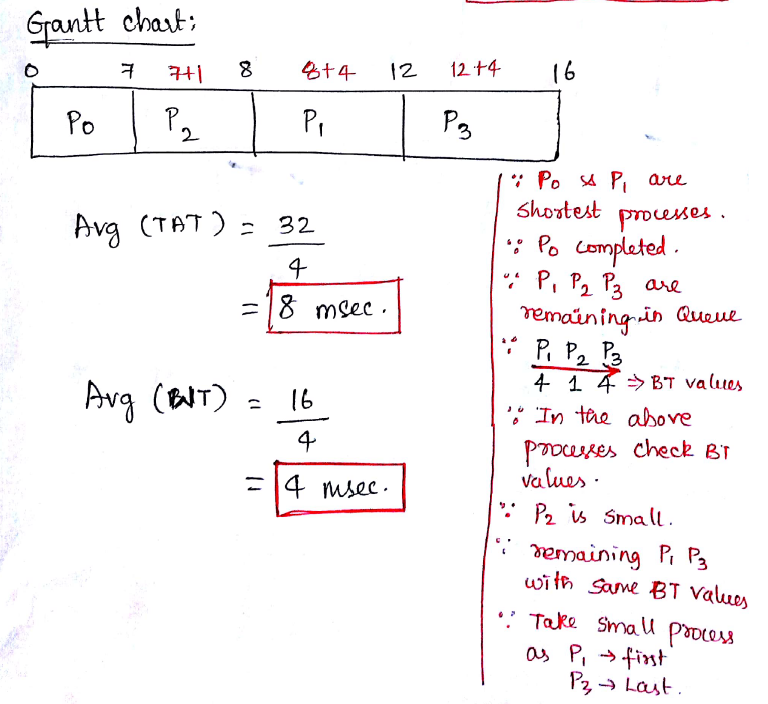 Gantt chart:
0 7 7+1 8 8+4 12 12+4 16
P0 P2 P1 P3
Avg (TAT) = 32
4
= 8 msec.
Avg (WT) = 16
4
= 4 msec.
∵ P0 & P1 are
shortest processes.
∵ P0 completed.
∵ P1 P2 P3 are
remaining in Queue
∵ P1 P2 P3
4 1 4 ⇒ BT values
∵ In the above
processes check BT
values.
∵ P2 is small.
∵ remaining P1 P3
with same BT values
∵ Take small process
as P1 → first
P3 → Last.